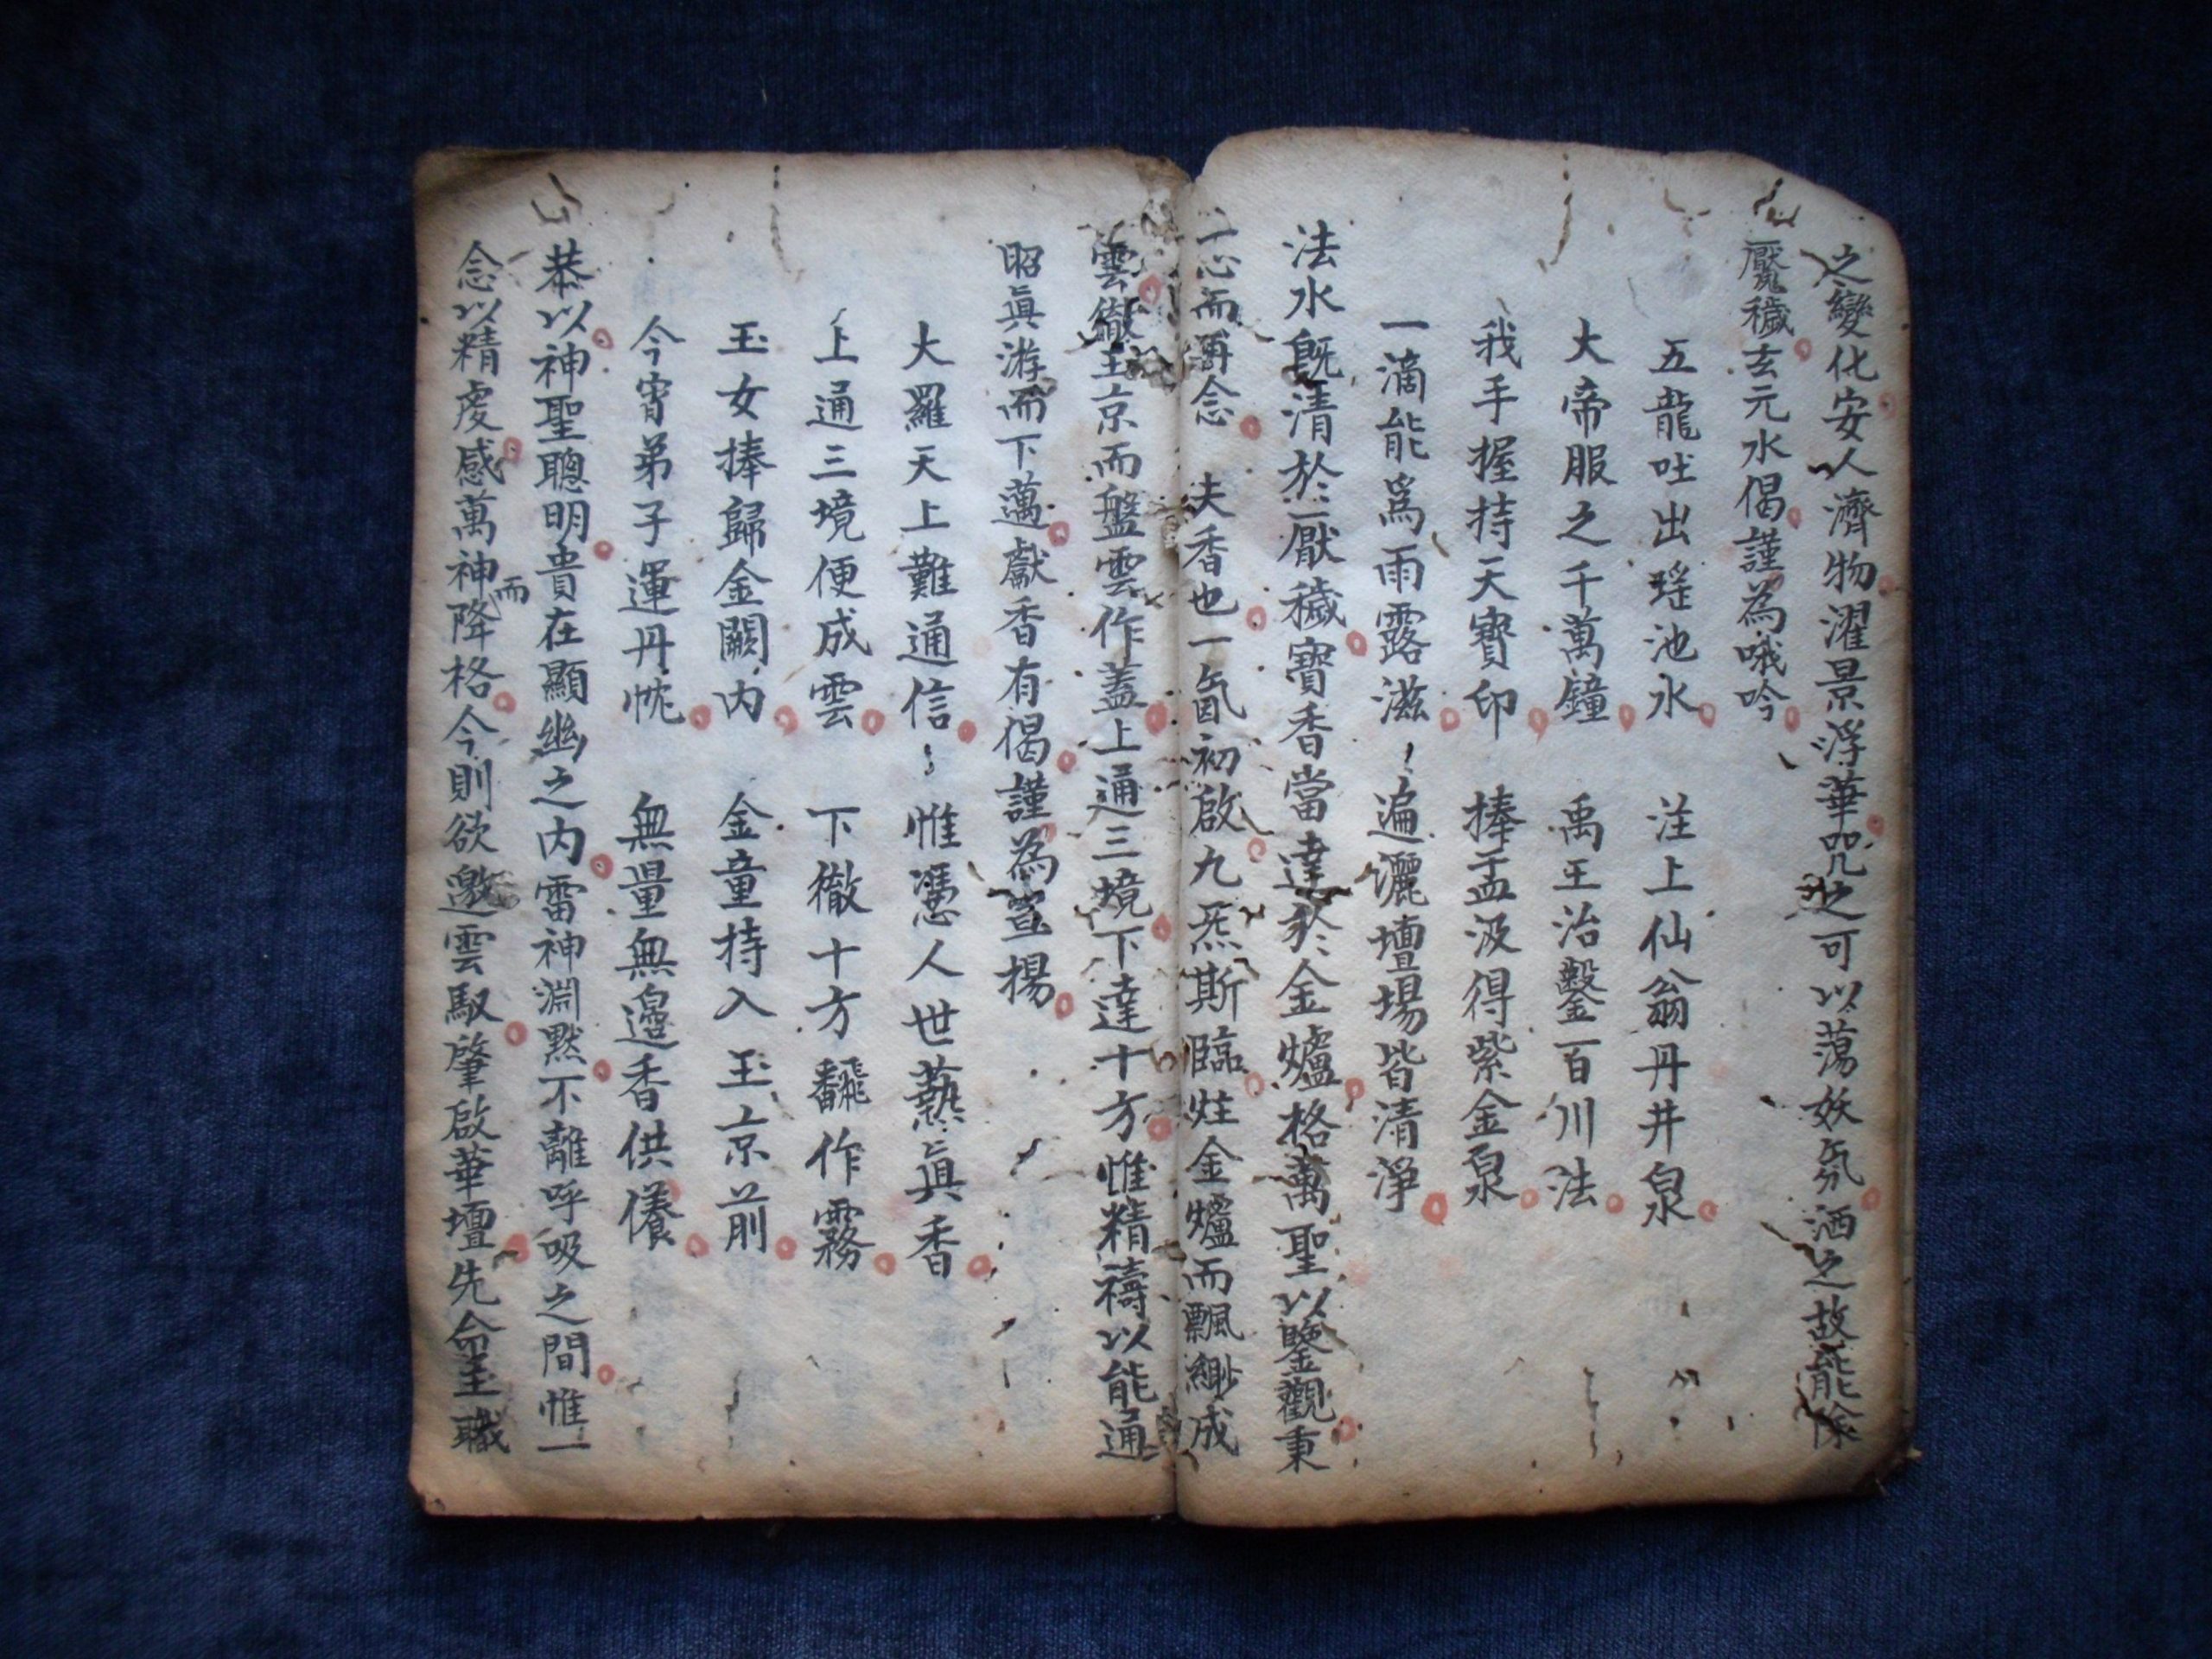 之變化安人濟物濯景浮華咒之可以蕩妖氛洒之故能除
魘穢玄元水偈謹為哦吟
五龍吐出瑤池水 注上仙翁丹井泉
大帝服之千萬鐘 禹王治鑿百川法
我手握持天寶印 捧盂汲得紫金泉
一滴能爲雨露滋 遍灑壇場皆清淨
法水既清於厭穢寶香當達於金爐格萬聖以鑒觀東
一心而再念 夫香也一氤初啟九炁斯臨炷金爐而飄緲成
雲徹玉京而盤雲作蓋上通三境下達十方惟精禱以能通
昭眞游而下邁獻香有偈謹為宣揚
大羅天上難通信 惟憑人世爇眞香
上通三境便成雲 下徹十方飜作霧
玉女捧歸金闕內 金童持入玉京前
今宵弟子運丹忱 無量無邊香供儀
恭以神聖聰明貴在顯幽之內雷神淵默不離呼吸之間惟一
念以精虔感萬神而降格今則欲邀雲馭肇啟華壇先命主職